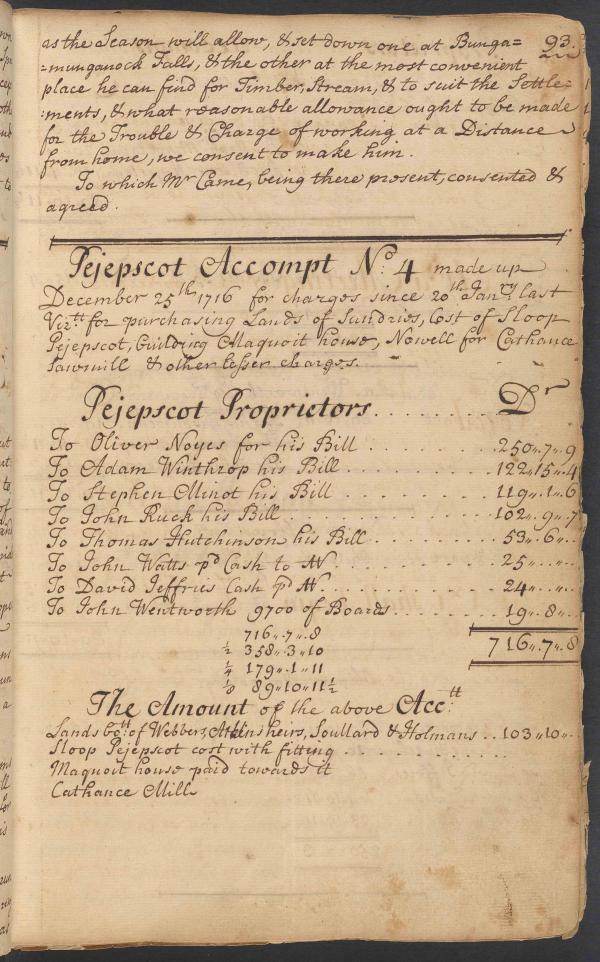 93.
as the Season will allow, & set down one at Bunga=
=munganock Falls, & the other at the most convenient
place he can find for Timber, Stream, & to suit the Settle=
:ments, & what reasonable allowance ought to be made
for the Trouble & Charge of working at a Distance
from home, we consent to make him.
To which Mr Came, being there present, consented &
agreed.
Pejepscot Accompt No: 4 made up
December 25th, 1716 for charges since 20th Janry last
Vizt for purchasing Lands of Sundries, Cost of Sloop
Pejepscot, building Maquoit house, Nowell for Cathance
Sawmill & other lesser charges.
Pejepscot Proprietors ....... Dr
To Oliver Noyes for his Bill ....... 250..7..9
To Adam Winthrop his Bill ....... 122..15..4
To Stephen Minot his Bill ....... 119..1..6
To John Ruck his Bill ....... 102..9..7
To Thomas Hutchinson his Bill ....... 53..6..
To John Watts pd Cash to AN ....... 25..
To David Jeffries Cash pd AN ....... 24..
To John Wentworth 9700 of Boards ....... 19..8..
716..7..8
716..7..8
½ 358..3..10
¼ 179..1..11
⅛ 89..10..11½
The Amount of the above Acctt:
Lands bott of Webbers, Atkins heirs, Soullard & Holmans .. 103..10..
Sloop Pejepscot cost with fitting .......
Maquoit house paid towards it
Cathance Mill